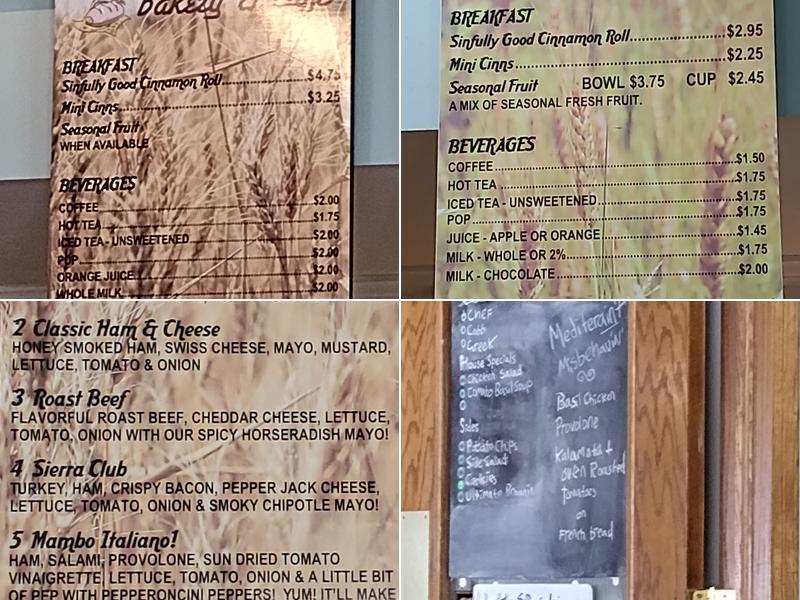 Bakery & Cafe
BREAKFAST
Sinfully Good Cinnamon Roll $4.75
Mini Cinns $3.25
Seasonal Fruit
WHEN AVAILABLE
BEVERAGES
COFFEE $2.00
HOT TEA $1.75
ICED TEA - UNSWEETENED $2.00
POP $2.00
ORANGE JUICE $2.00
WHOLE MILK $2.00
BREAKFAST
Sinfully Good Cinnamon Roll $2.95
Mini Cinns $2.25
Seasonal Fruit BOWL $3.75 CUP $2.45
A MIX OF SEASONAL FRESH FRUIT.
BEVERAGES
COFFEE $1.50
HOT TEA $1.75
ICED TEA - UNSWEETENED $1.75
POP $1.75
JUICE - APPLE OR ORANGE $1.45
MILK - WHOLE OR 2% $1.75
MILK - CHOCOLATE $2.00
2 Classic Ham & Cheese
HONEY SMOKED HAM, SWISS CHEESE, MAYO, MUSTARD,
LETTUCE, TOMATO & ONION
3 Roast Beef
FLAVORFUL ROAST BEEF, CHEDDAR CHEESE, LETTUCE,
TOMATO, ONION WITH OUR SPICY HORSERADISH MAYO!
4 Sierra Club
TURKEY, HAM, CRISPY BACON, PEPPER JACK CHEESE,
LETTUCE, TOMATO, ONION & SMOKY CHIPOTLE MAYO!
5 Mambo Italiano!
HAM, SALAMI, PROVOLONE, SUN DRIED TOMATO
VINAIGRETTE, LETTUCE, TOMATO, ONION & A LITTLE BIT
OF PEP WITH PEPPERONCINI PEPPERS! YUM! IT'LL MAKE
Chef
Cobb
Greek
House Specials
Chicken Salad
Tomato Basil Soup
Sides
Potato Chips
Side Salad
Cookies
Ultimate Brownie
Misbehavin'
Basil Chicken
Provolone
Kalamata &
oven Roasted
Tomatoes
on
French bread